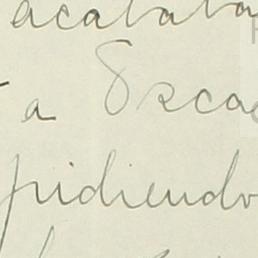 acababa
a Osca
pidiendo